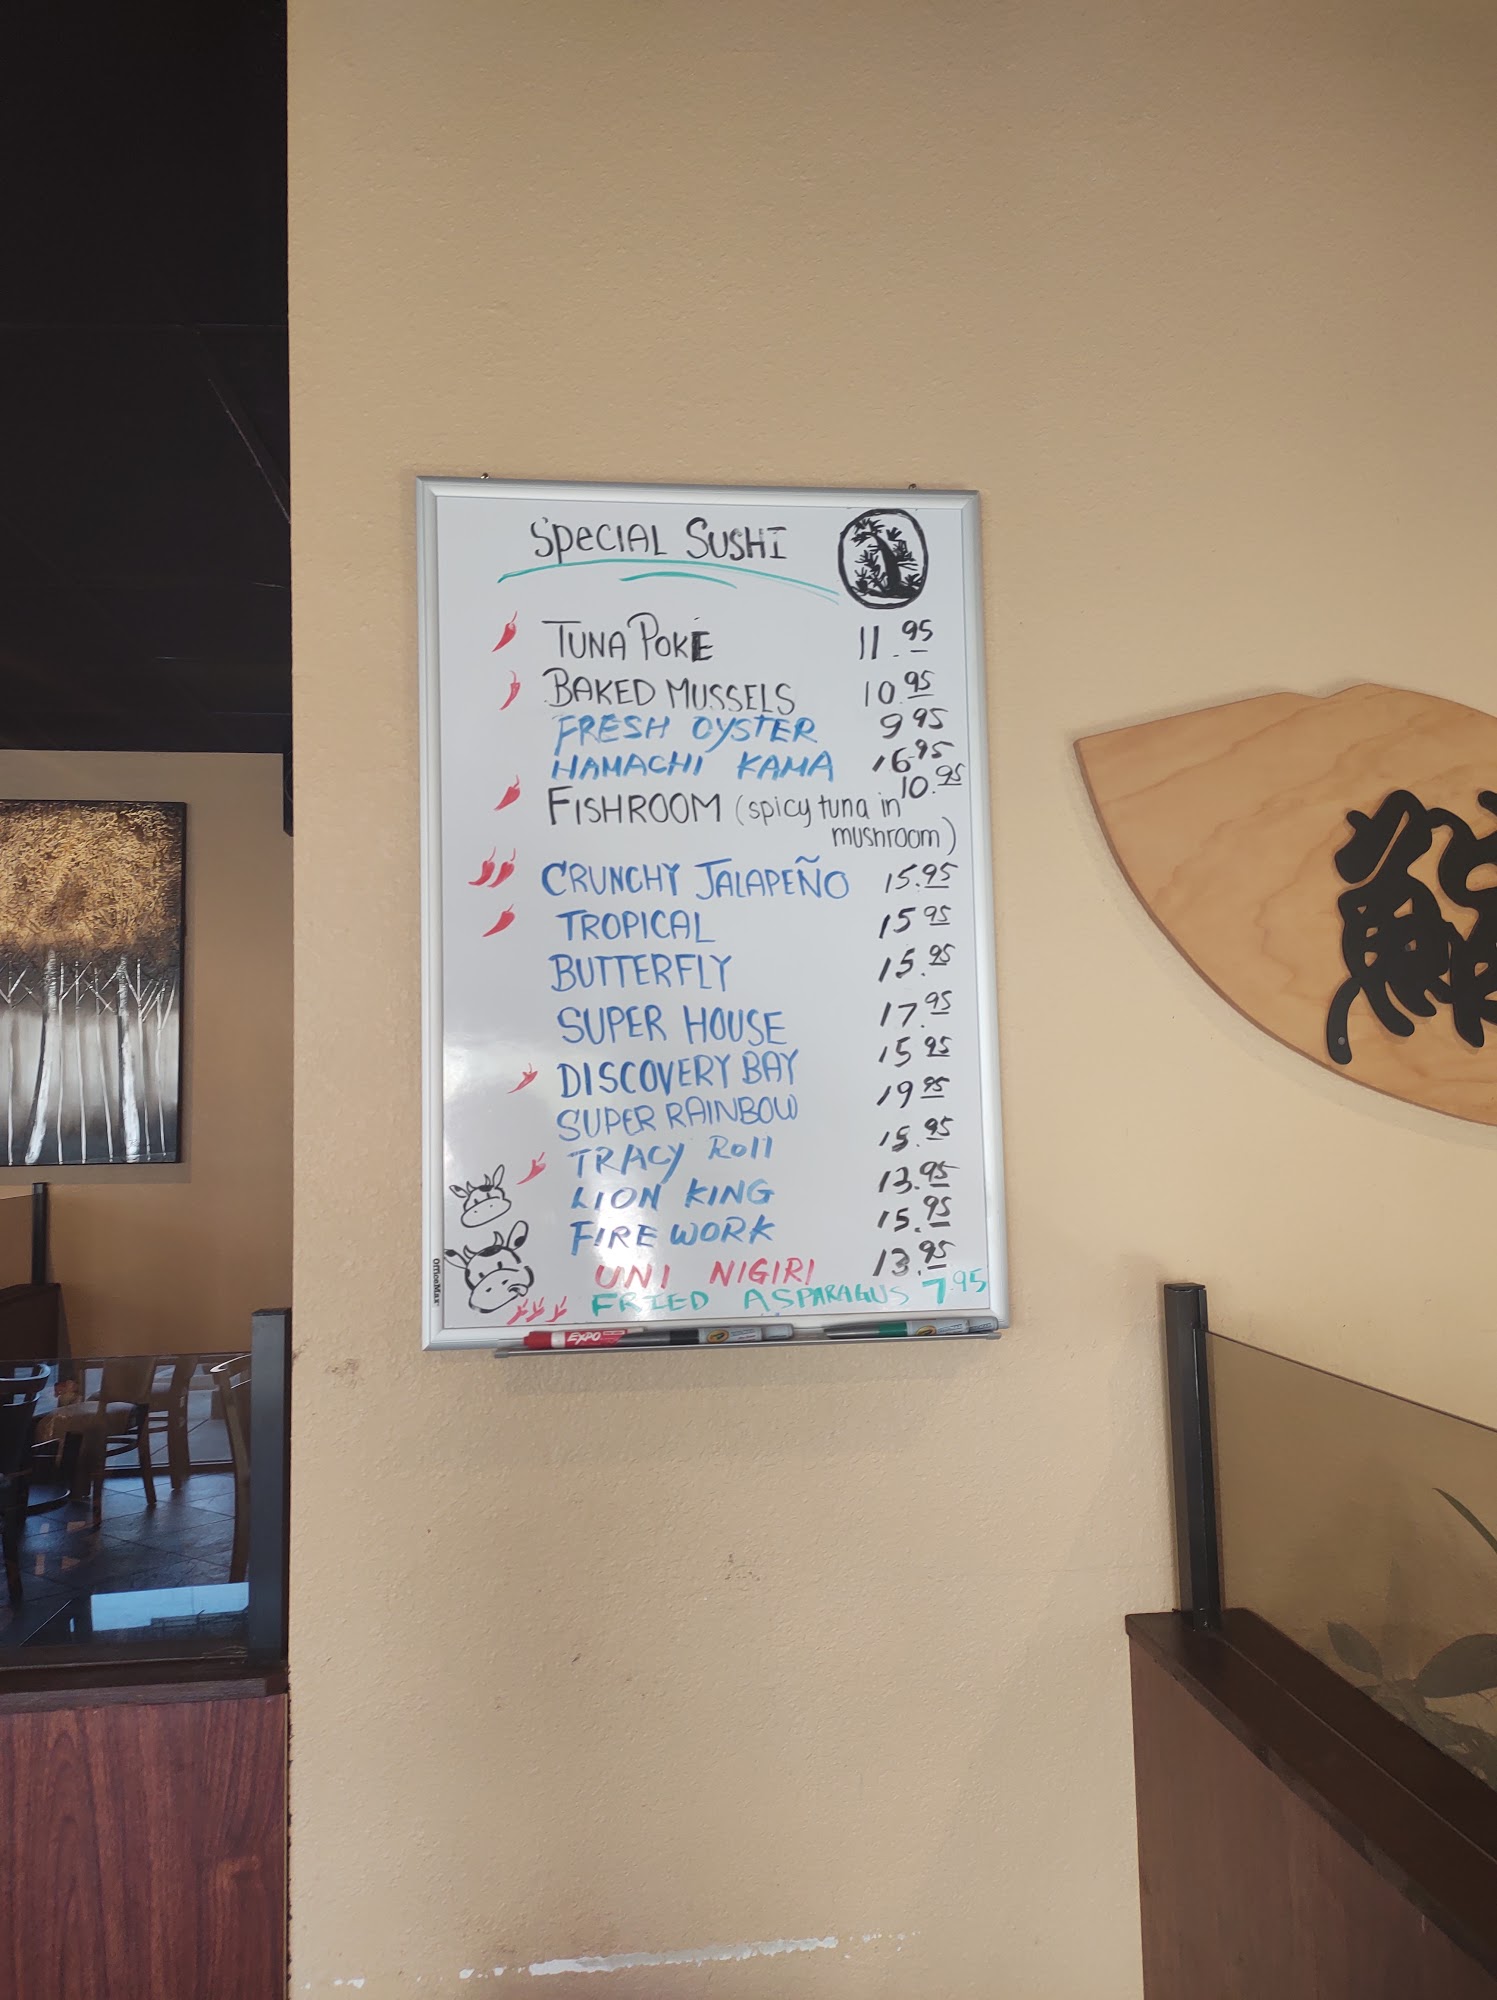 Special Sushi
Tuna Poke 11.95
Baked Mussels 10.95
Fresh Oyster 9.95
Hamachi Kama 16.95
Fishroom (spicy tuna in 10.95
mushroom)
Crunchy Jalapeño 15.95
Tropical 15.95
Butterfly 15.95
Super House 17.95
Discovery Bay 15.95
Super Rainbow 19.95
Tracy Roll 15.95
Lion King 13.95
Fire Work 15.95
Uni Nigiri 13.95
Fried Asparagus 7.95
OfficeMax
EXPO
鮨